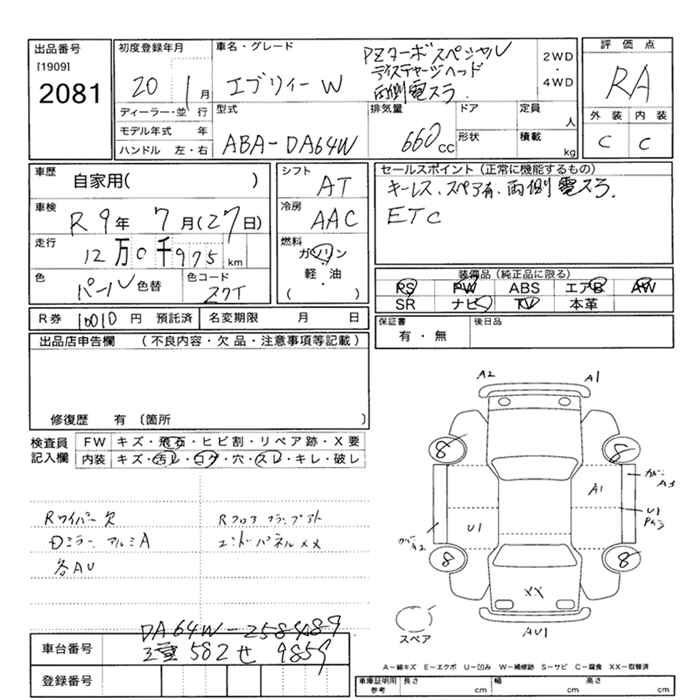 出品番号
[1909]
2081
初度登録年月
20 1月
ディーラー・並 行
モデル年式 年
ハンドル 左・右
車名・グレード
エブリィーW
PZターボスペシャル
ディスチャージヘッド
両側電スラ
2WD
・
4WD
型式
ABA-DA64W
排気量
660cc
ドア
形状
定員
人
積載
kg
評価点
RA
外装 内装
C C
車歴
自家用( )
車検
R9年 7月(27日)
走行
12万0千975km
色
パール 色替
色コード
Z7T
シフト
AT
冷房
AAC
燃料
ガソリン
・
軽・油
( )
セールスポイント(正常に機能するもの)
キーレス、スペア有、両側電スラ.
ETC
装備品(純正品に限る)
PS PW ABS エアB AW
SR ナビ TV 本革
R券 10010円 預託済 名変期限 月 日
保証書
有・無
後日品
出品店申告欄 (不良内容・欠品・注意事項等記載)
修復歴 有 〔箇所 〕
検査員
記入欄
FW キズ・飛石・ヒビ割・リペア跡・X要
内装 キズ・汚レ・コゲ・穴・スレ・キレ・破レ
Rワイパー欠
Dミラー、アルミA
各AU
Rフロア
エンドパネルXX
A2 A1
8 8
A1
カバー A3
U1
U1
カバー A2
8 8
XX
AU1
スペア
DA64W-258489
車台番号
582 せ 9859
登録番号
A-線キズ E-エクボ U-凹み W-補修跡 S-サビ C-腐食 XX-交換済
車庫証明用
参考
長さ cm 幅 cm 高さ cm